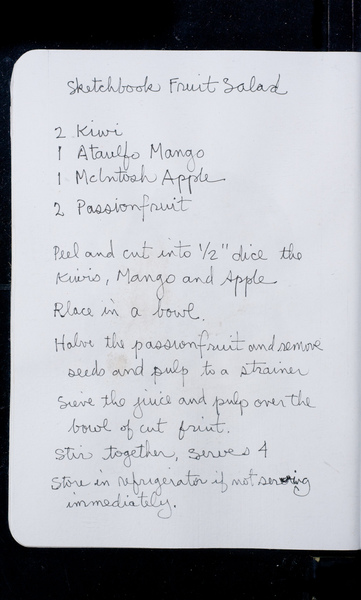 Sketchbook Fruit Salad
2 Kiwi
1 Ataulfo Mango
1 McIntosh Apple
2 Passionfruit
Peel and cut into 1/2" dice the
Kiwis, Mango and Apple
Place in a bowl.
Halve the passionfruit and remove
seeds and pulp to a strainer
Sieve the juice and pulp over the
bowl of cut fruit.
Stir together, serves 4
Store in refrigerator if not serving
immediately.